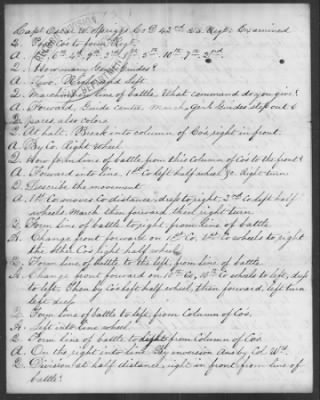 Capt Oscar W. Spriggs Co D 42nd Regt. Examined
Q. Post Co's to form Regt.
A. 1st 6th 4th 9th 3rd 8th 5th 10th 7th 2nd.
Q. How many Genl Guides?
A. Two. Right and left.
Q. Marching in line of battle, What command do you give?
A. Forward, Guide centre, March, Genl Guides step out 6
paces also colors.
Q. At halt. Break into column of Co's right in front.
A. By Co. Right Wheel
Q. How form line of battle from this Column of Co's to the front?
A. Forward into line, 1st Co left half wheel &c. Right turn.
Q. Describe the movement.
A. 1st Co. moves Co distance, dress to right, 2nd Co left half
wheels, March then forward then right turn.
Q. Form line of battle to right, from line of battle.
A. Change front forward on 1st Co. 1st Co wheels to right
the other Co's right half wheel.
Q. Form line of battle to the left, from line of battle.
A. Change front forward on 10th Co, 10th Co wheels to left, dress
to left. Then by Co's left half wheel, then forward, left turn
left dress.
Q. Form line of battle to left, from Column of Co's.
A. Left into line wheel.
Q. Form line of battle to right from Column of Co's.
A. On the right into line. By inversion Ans by Col Wm.
Q. Division at half distance, right in front from line of
battle?